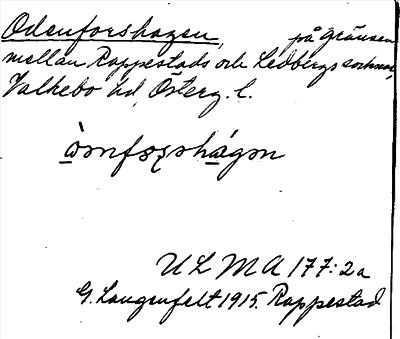 Odenforshagen, på gränsen
mellan Rappestads och Ledbergs socknar,
Valkebo hd, Österg. l.
U L M A 177:2a
G. Langenfelt 1915. Rappestad